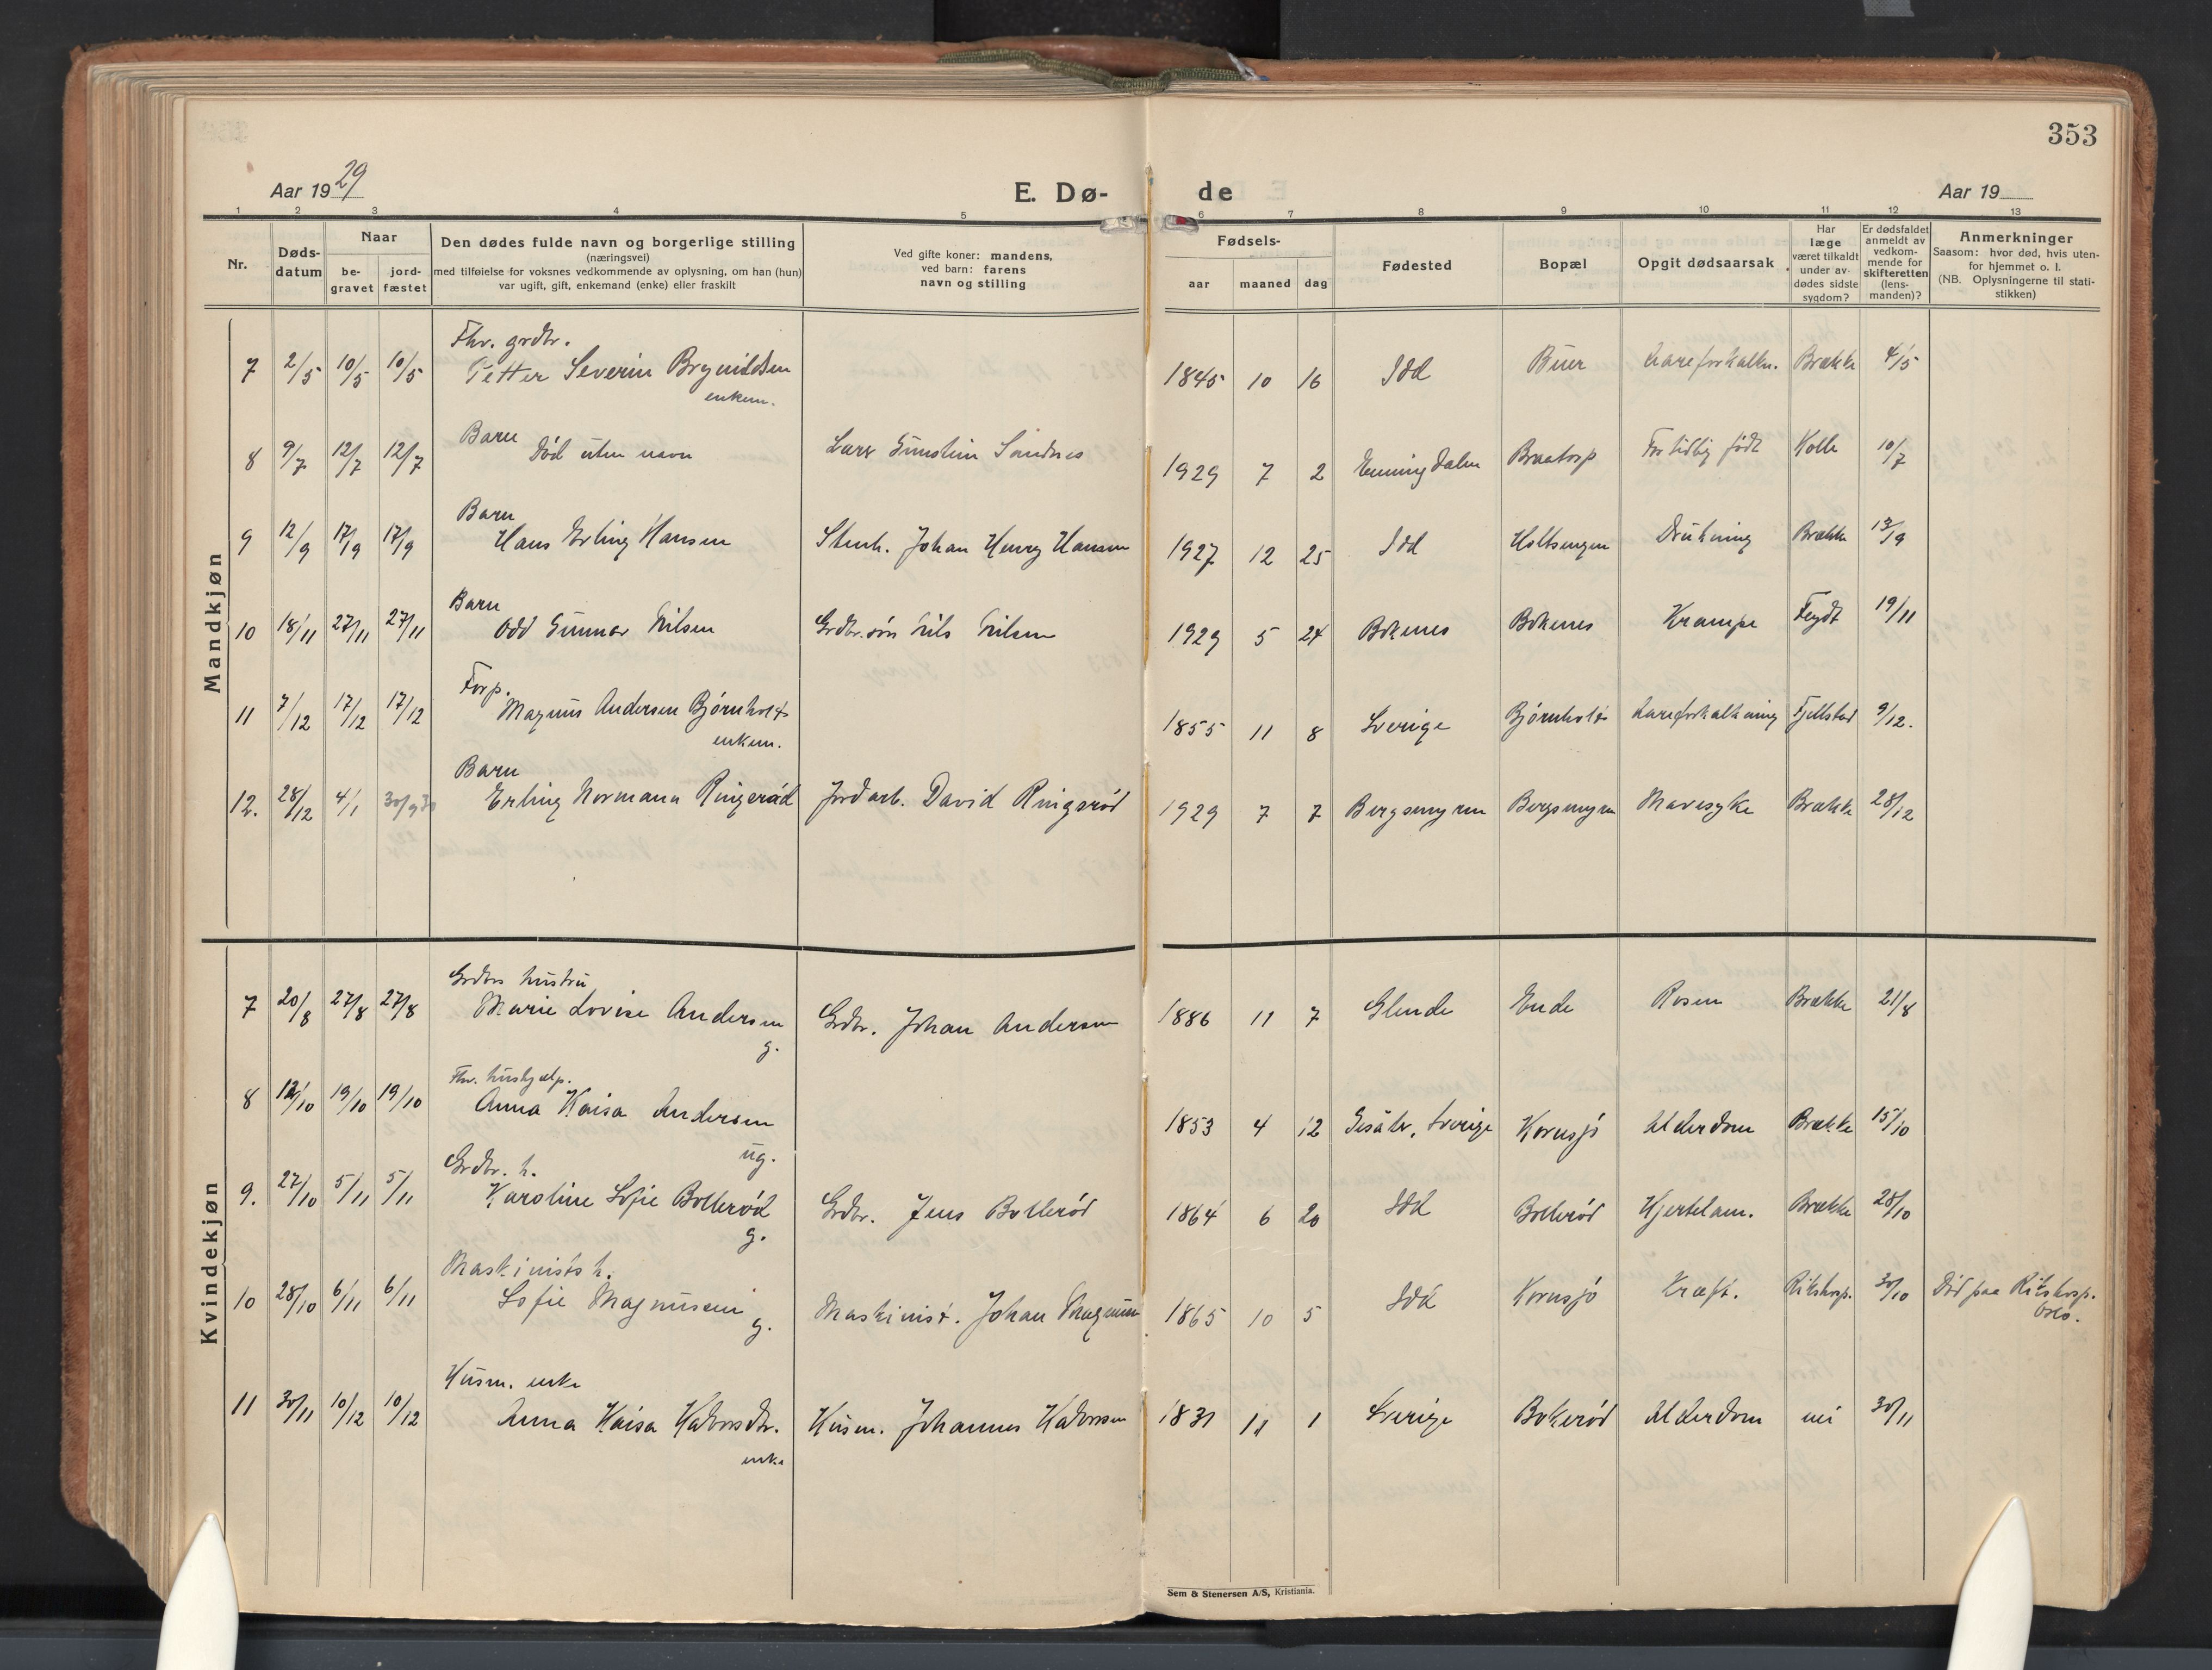 353
Aar 1929
E. Dø-
de
Aar 19
1 2 3 4 5 6 7 8 9 10 11 12 13
Nr.
Døds-
datum
Naar
be-
gravet
jord-
fæstet
Den dødes fulde navn og borgerlige stilling
(næringsvei)
med tilføielse for voksnes vedkommende av oplysning, om han (hun)
var ugift, gift, enkemand (enke) eller fraskilt
Ved gifte koner: mandens,
ved barn: farens
navn og stilling
Fødsels-
aar maaned dag
Fødested
Bopæl
Opgit dødsaarsak
Har
læge
været tilkaldt
under av-
dødes sidste
sygdom?
Er dødsfaldet
anmeldt av
vedkom-
mende for
skifteretten
(lens-
manden)?
Anmerkninger
Saasom: hvor død, hvis uten-
for hjemmet o. l.
(NB. Oplysningerne til stati-
stikken)
Mandkjøn
Fhv. grdbr.
7 2/5 10/5 10/5 Petter Severin Brynildsen 1845 10 16 Idd Buer Brække 4/5
enkem.
Barn
8 9/7 12/7 12/7 Død uten navn Sandnes 1929 7 2 Enningdalen Braatorp For tidlig født Kolle 10/7
Barn
9 12/9 17/9 17/9 Hans Erling Hansen Stenh. Johan Henry Hansen 1927 12 25 Idd Holtsengen Drukning Brække 13/9
Barn
10 18/11 27/11 27/11 Odd Gunnar Nilsen Grdbr.søn Nils Nilsen 1929 5 24 Bokenes Bokenes Krampe Feydt 19/11
Forp.
11 7/12 17/12 17/12 Magnus Andersen Bjørnholt 1855 11 8 Sverige Bjørnholt Aareforkalkning Fjellstad 9/12.
enkem.
Barn
12. 28/12 4/1 30/9 30 Erling Normann Ringerød Jordarb. David Ringsrød 1929 7 7 Bergsmyren Bergsmyren Mavesyke Brække 28/12
Kvindekjøn
Grdbrs hustru
7 20/8 27/8 27/8 Marie Lovise Andersen Grdbr. Johan Andersen 1886 11 7 Glende Ende Rosen Brække 21/8
g.
Fhv. hushjælp.
8 12/10 19/10 19/10 Anna Kaisa Andersen 1853 4 12 Sverige Kornsjø Alderdom Brække 15/10
ug.
Grdbr. h.
9. 27/10 5/11 5/11 Karoline Sofie Bollerød Grdbr. Jens Bollerød 1864 6 20 Idd Bollerød Hjertelam. Brække 28/10
g.
Maskinists h.
10 28/10 6/11 6/11 Sofie Magnusen Maskinist. Johan Magnusen 1865 10 5 Idd Kornsjø Kræft. Rikshosp. 30/10 Død paa Rikshosp.
g. Oslo.
Husm. enke
11 30/11 10/12 10/12 Anna Kaisa Halvorsdtr. Husm. Johannes Halvorsen 1831 11 1 Sverige Bokerød Alderdom nei 30/11
enke
Sem & Stenersen A/S, Kristiania.